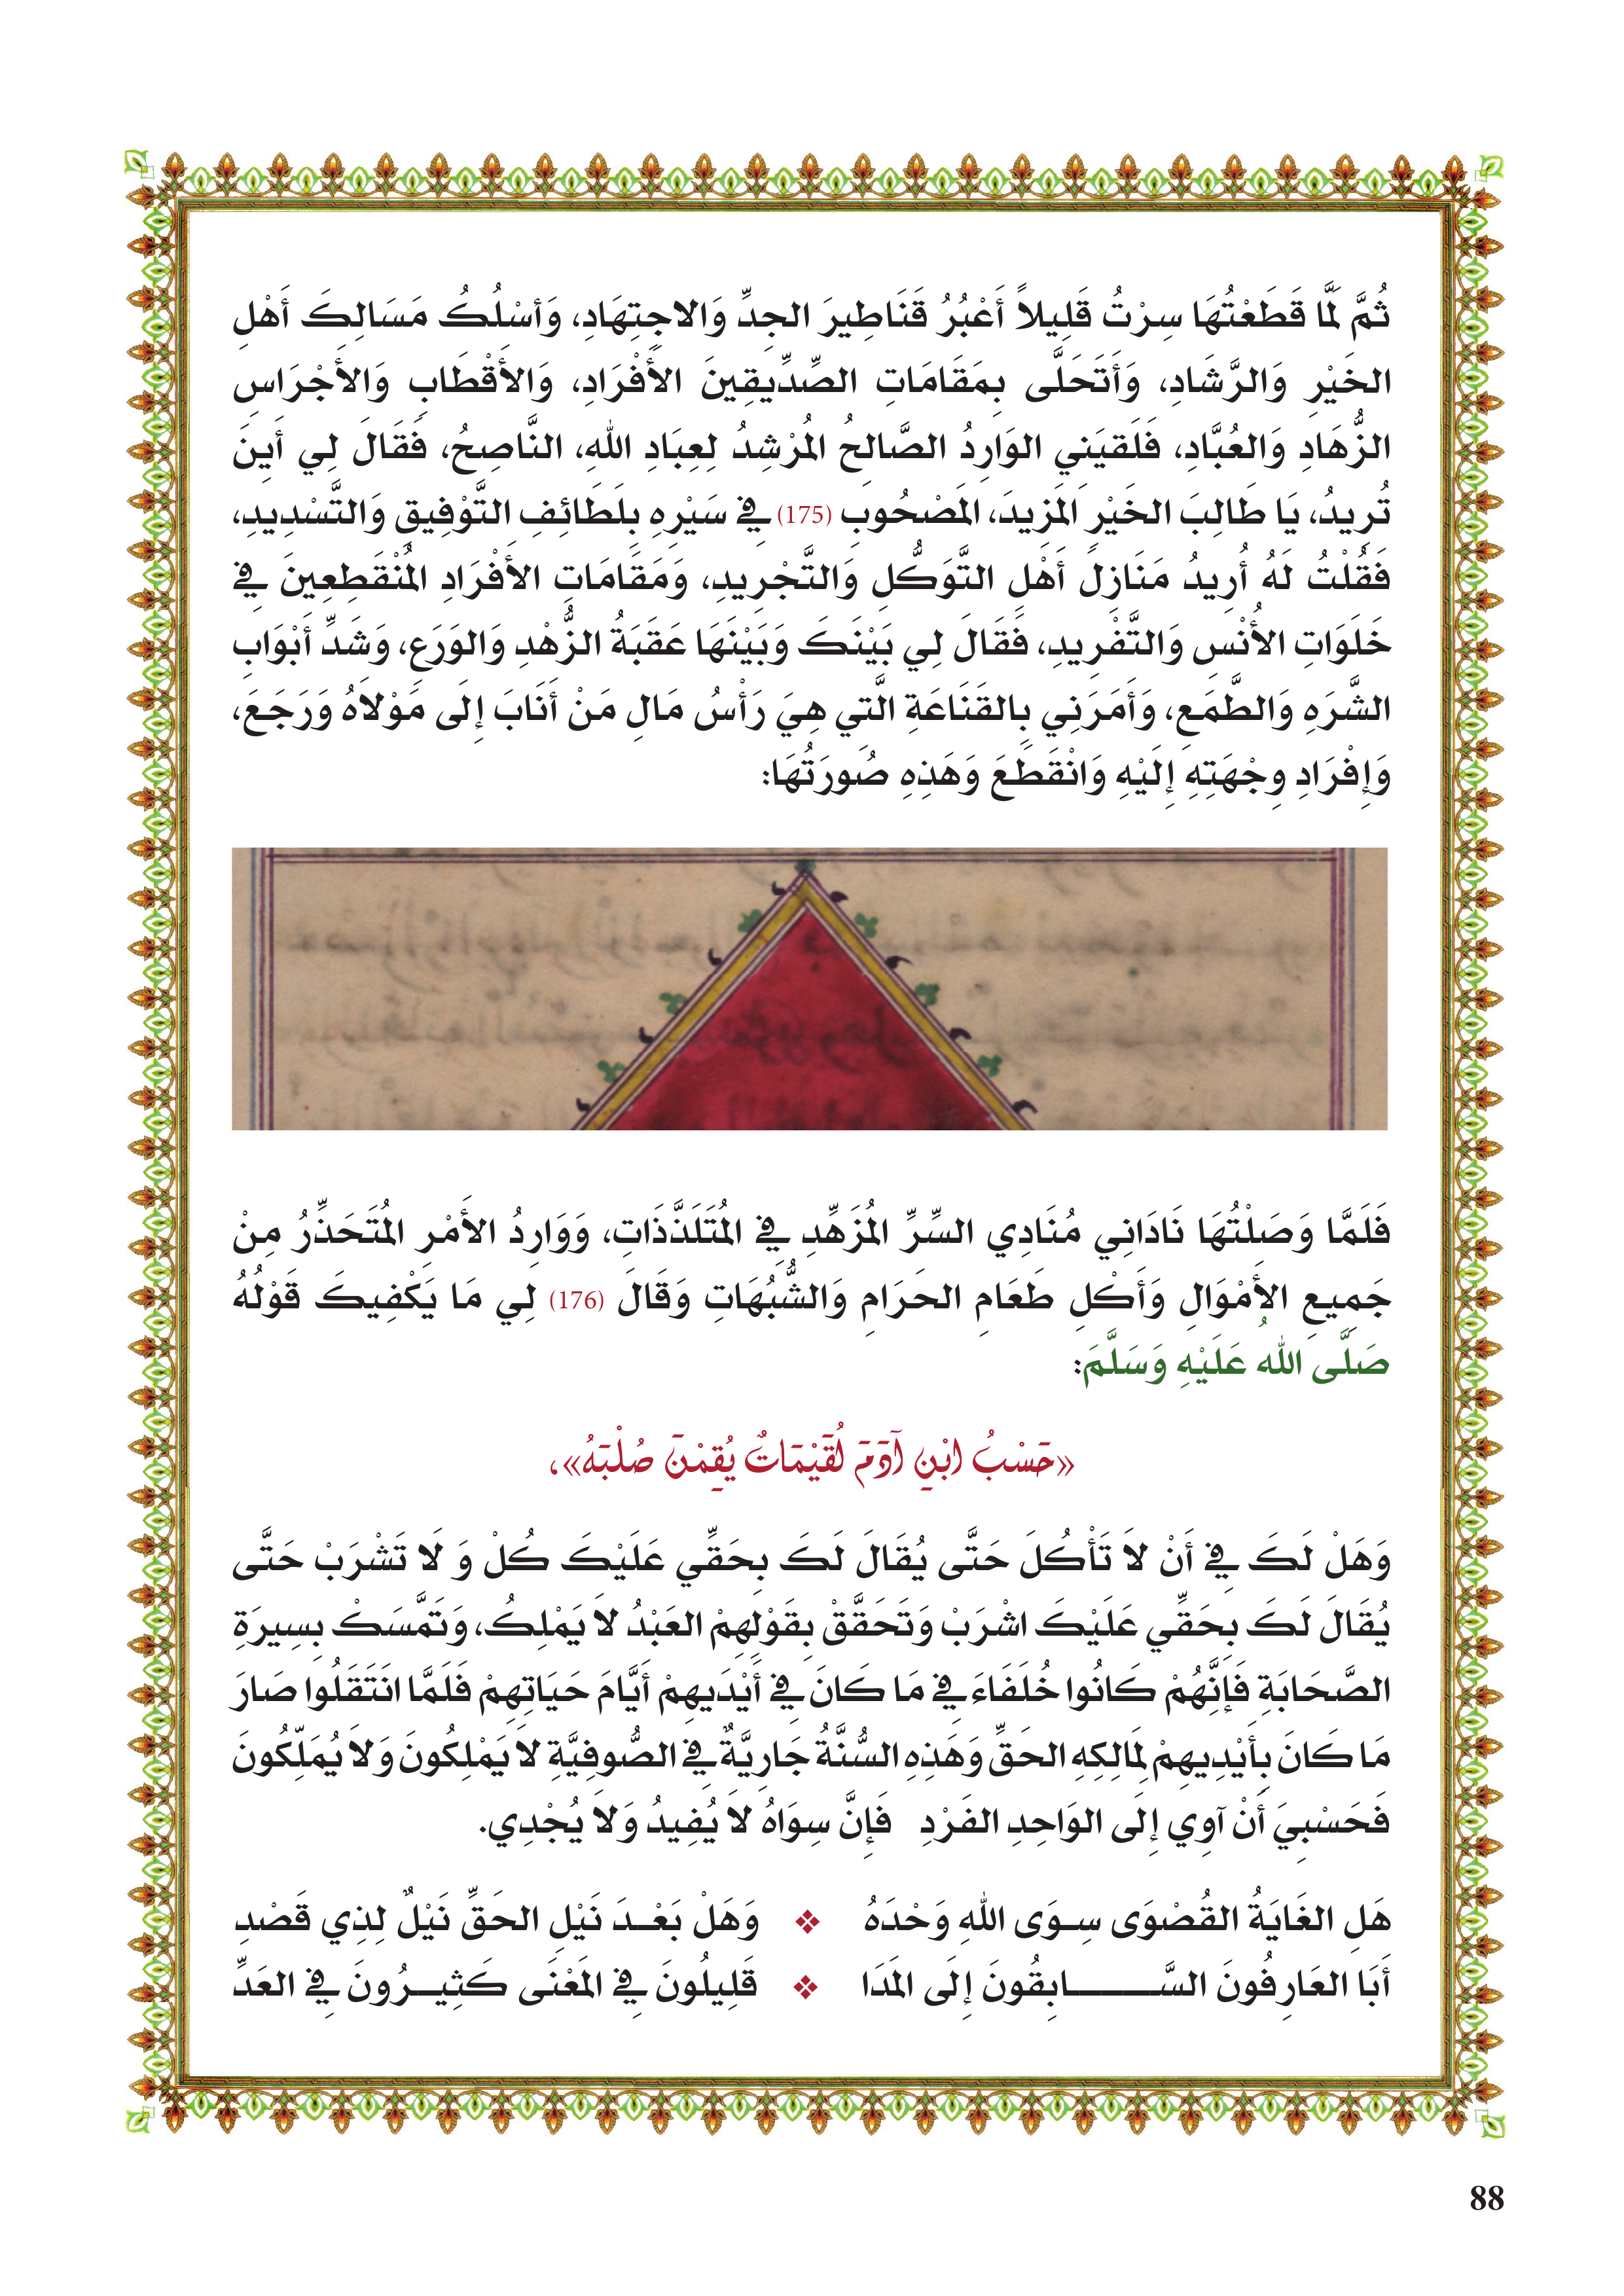 ثُمَّ لَمَّا قَطَعْتُهَا سِرْتُ قَلِيلاً أَعْبُرُ قَنَاطِيرَ الجِدِّ وَالاجِتِهَادِ، وَأسْلُكُ مَسَالِكَ أَهْلِ
الخَيْرِ وَالرَّشَادِ، وَأَتَحَلَّى بِمَقَامَاتِ الصِّدِّيقِينَ الأَفْرَادِ، وَالأَقْطَابِ وَالأَجْرَاسِ
الزُّهَادِ وَالعُبَّادِ، فَلَقيَنِي الوَارِدُ الصَّالِحُ المُرْشِدُ لِعِبَادِ اللهِ، النَّاصِحُ، فَقَالَ لِي أَينَ
تُرِيدُ، يَا طَالِبَ الخَيْرِ المَزِيدَ، المَصْحُوبِ (175) فِي سَيْرِهِ بِلَطَائِفِ التَّوْفِيقِ وَالتَّسْدِيدِ،
فَقُلْتُ لَهُ أُرِيدُ مَنَازِلَ أَهْلِ التَّوَكُّلِ وَالتَّجْرِيدِ، وَمَقَامَاتِ الأَفْرَادِ المُنْقَطِعِينَ فِي
خَلَوَاتِ الأُنْسِ وَالتَّفْرِيدِ، فَقَالَ لِي بَيْنَكَ وَبَيْنَهَا عَقَبَةُ الزُّهْدِ وَالوَرَعِ، وَشَدِّ أَبْوَابِ
الشَّرَهِ وَالطَّمَعِ، وَأَمَرَنِي بِالقَنَاعَةِ الَّتِي هِيَ رَأْسُ مَالِ مَنْ أَنَابَ إِلَى مَوْلاَهُ وَرَجَعَ،
وَإِفْرَادِ وِجْهَتِهِ إِلَيْهِ وَانْقَطَعَ وَهَذِهِ صُورَتُهَا:
فَلَمَّا وَصَلْتُهَا نَادَانِي مُنَادِي السِّرِّ المُزَهِّدِ فِي المُتَلَذَّذَاتِ، وَوَارِدُ الأَمْرِ المُتَحَذِّرُ مِنْ
جَمِيعِ الأَمْوَالِ وَأَكْلِ طَعَامِ الحَرَامِ وَالشُّبُهَاتِ وَقَالَ (176) لِي مَا يَكْفِيكَ قَوْلُهُ
صَلَّى اللهُ عَلَيْهِ وَسَلَّمَ:
«حَسْبُ ابْنِ آدَمَ لُقَيْمَاتٌ يُقِمْنَ صُلْبَهُ»،
وَهَلْ لَكَ فِي أَنْ لاَ تَأْكُلَ حَتَّى يُقَالَ لَكَ بِحَقِّي عَلَيْكَ كُلْ وَ لَا تَشْرَبْ حَتَّى
يُقَالَ لَكَ بِحَقِّي عَلَيْكَ اشْرَبْ وَتَحَقَّقْ بِقَوْلِهِمْ العَبْدُ لاَ يَمْلِكُ، وَتَمَّسَكْ بِسِيرَةِ
الصَّحَابَةِ فَإِنَّهُمْ كَانُوا خُلَفَاءَ فِي مَا كَانَ فِي أَيْدَيهِمْ أَيَّامَ حَيَاتِهِمْ فَلَمَّا انَتَقَلُوا صَارَ
مَا كَانَ بِأَيْدِيهِمْ لِمَالِكِهِ الحَقِّ وَهَذِهِ السُّنَّةُ جَارِيَّةٌ فِي الصُّوفِيَّةِ لاَ يَمْلِكُونَ وَلاَ يُمَلِّكُونَ
فَحَسْبِيَ أَنْ آوِي إِلَى الوَاحِدِ الفَرْدِ   فَإِنَّ سِوَاهُ لاَ يُفِيدُ وَلاَ يُجْدِي.
هَلِ الغَايَةُ القُصْوَى سِوَى اللهِ وَحْدَهُ ❖ وَهَلْ بَعْدَ نَيْلِ الحَقِّ نَيْلٌ لِذِي قَصْدِ
أَبَا العَارِفُونَ السَّابِقُونَ إِلَى المَدَا ❖ قَلِيلُونَ فِي المَعْنَى كَثِيرُونَ فِي العَدِّ
88